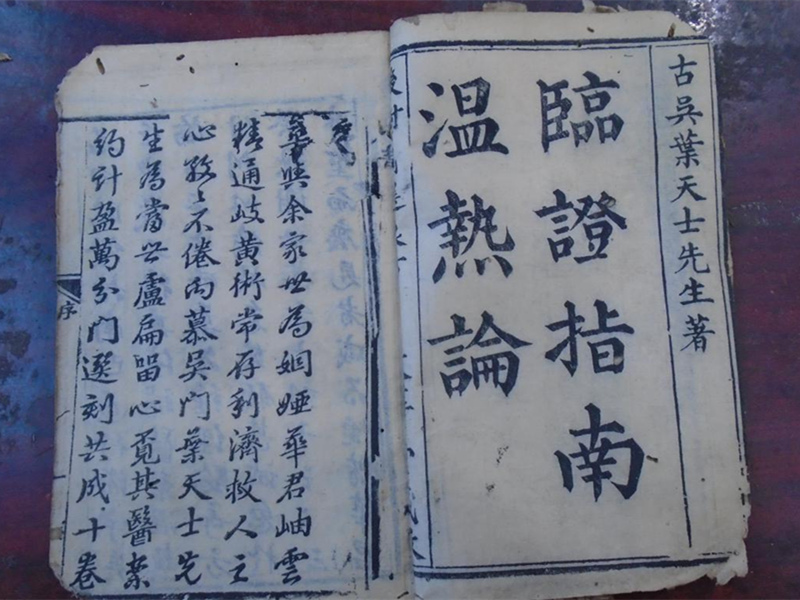 古吳葉天士先生著
臨證指南
温熱論
華與余家世為姻婭華君岫雲
精通岐黃術常存利濟救人之
心孜〻不倦而慕吳門葉天士先
生為當世盧扁留心覓其醫案
約計盈萬分門選刻共成十卷
序